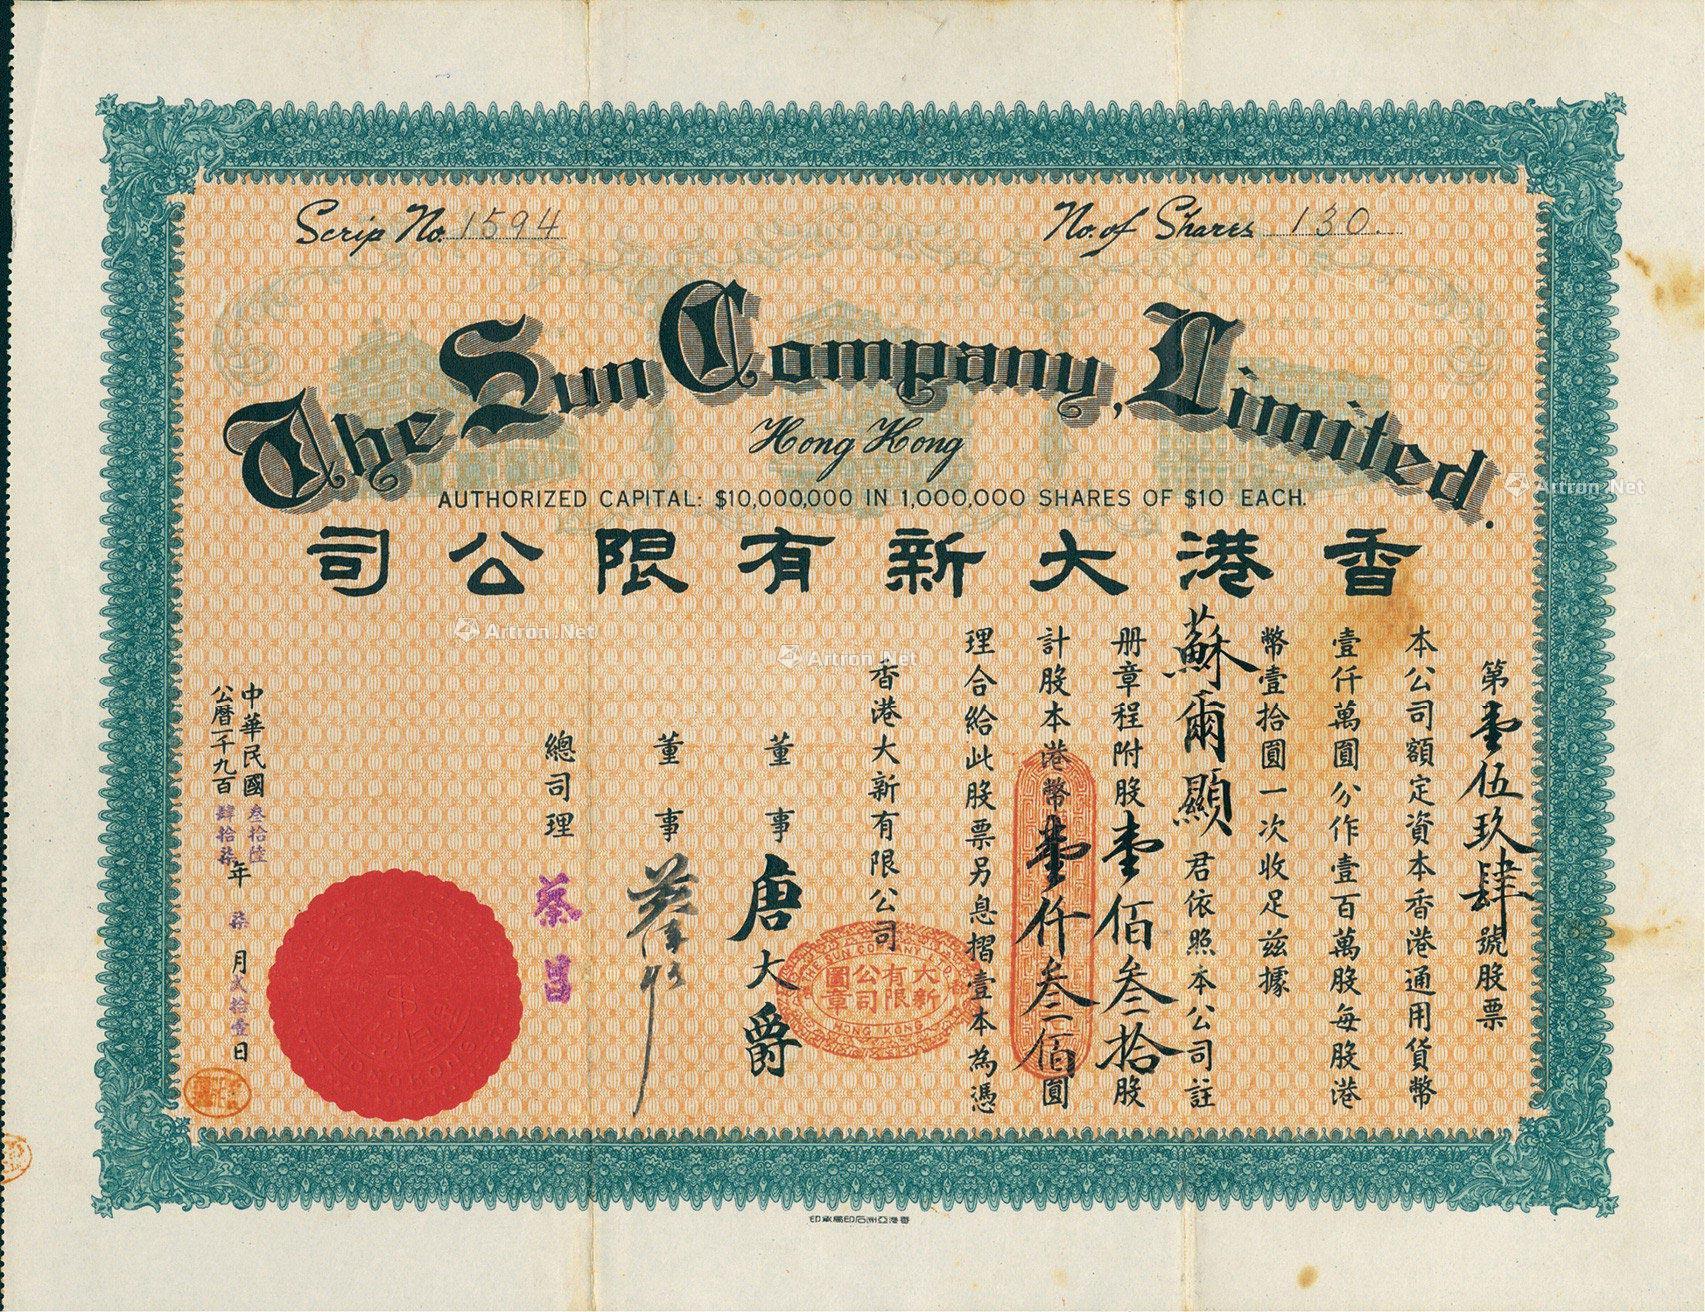 Scrip No. 1594
No. of Shares 130.
The Sun Company, Limited.
Hong Kong
AUTHORIZED CAPITAL: $10,000,000 IN 1,000,000 SHARES OF $10 EACH.
香港大新有限公司
第壹伍玖肆號股票
本公司額定資本香港通用貨幣
壹仟萬圓分作壹百萬股每股港
幣壹拾圓一次收足茲據
蘇爾顯君依照本公司註
册章程附股壹佰叁拾股
計股本港幣壹仟叁佰圓
理合給此股票另息摺壹本為憑
香港大新有限公司
董事 唐大爵
董事
總司理 蔡昌
中華民國叁拾陸年
公曆一千九百肆拾柒
柒月弍拾壹日
THE SUN COMPANY LTD.
大新有限公司圖章
HONG KONG
香港亞洲石印局承印
Artron.Net
Artron.Net
Artron.Net